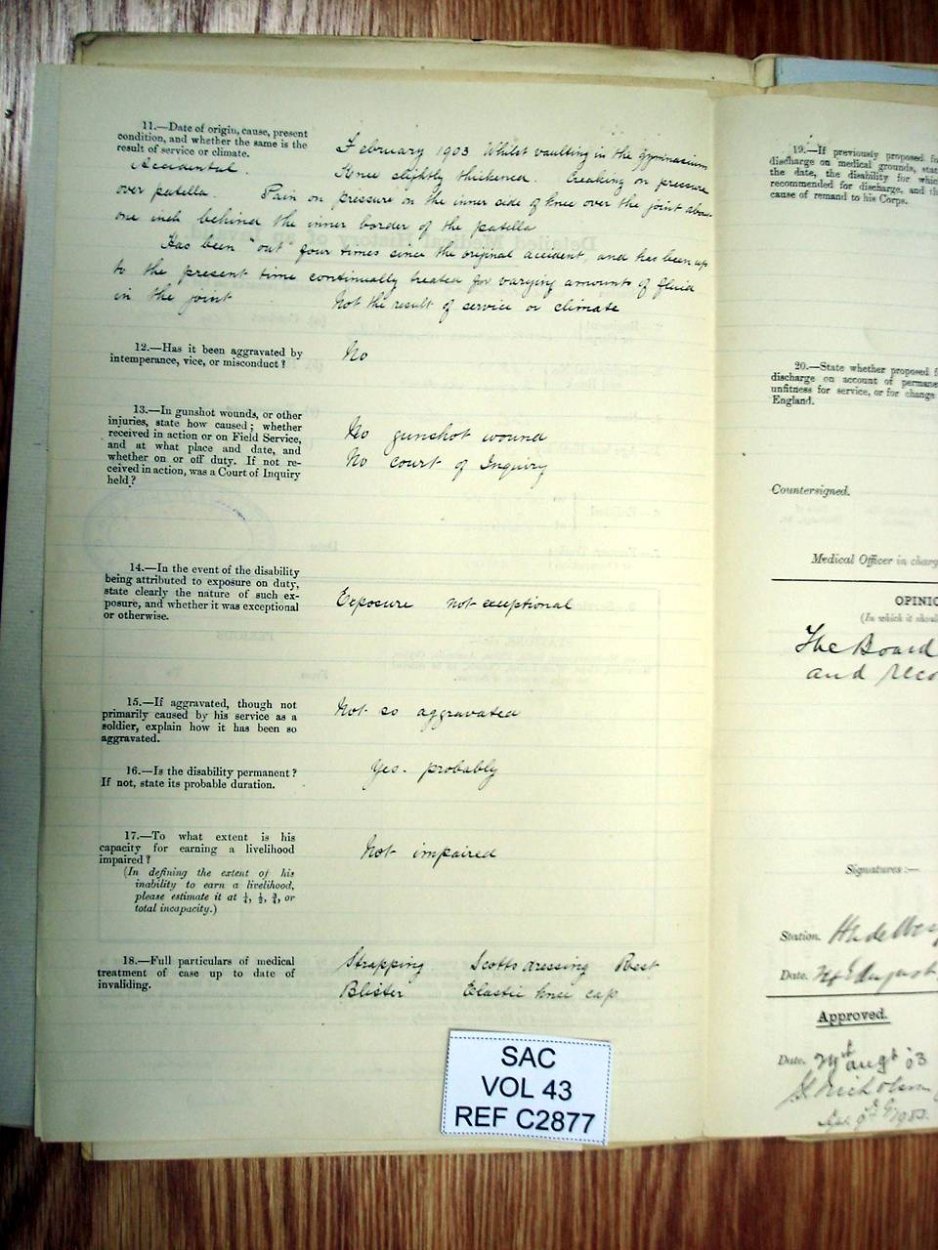 11.—Date of origin, cause, present
condition, and whether the same is the
result of service or climate.
Accidental.
February 1903 Whilst vaulting in the Gymnasium
Knee slightly thickened. Creaking on pressure
over patella. Pain on pressure on the inner side of knee over the joint abou
one inch behind the inner border of the patella
Has been "out" four times since the original accident and has been up
to the present time continually treated for varying amounts of fluid
in the joint Not the result of service or climate
12.—Has it been aggravated by
intemperance, vice, or misconduct?
No
13.—In gunshot wounds, or other
injuries, state how caused; whether
received in action or on Field Service,
and at what place and date, and
whether on or off duty. If not re-
ceived in action, was a Court of Inquiry
held?
No gunshot wound
No court of Inquiry
14.—In the event of the disability
being attributed to exposure on duty,
state clearly the nature of such ex-
posure, and whether it was exceptional
or otherwise.
Exposure not exceptional
15.—If aggravated, though not
primarily caused by his service as a
soldier, explain how it has been so
aggravated.
Not so aggravated
16.—Is the disability permanent?
If not, state its probable duration.
Yes. probably
17.—To what extent is his
capacity for earning a livelihood
impaired?
(In defining the extent of his
inability to earn a livelihood,
please estimate it at ¼, ½, ¾, or
total incapacity.)
Not impaired
18.—Full particulars of medical
treatment of case up to date of
invaliding.
Strapping Scotts dressing Rest
Blister Elastic knee cap
SAC
VOL 43
REF C2877
19.—If previously proposed fo
discharge on medical grounds, stat
the date, the disability for whic
recommended for discharge, and th
cause of remand to his Corps.
20.—State whether proposed f
discharge on account of permane
unfitness for service, or for change
England.
Countersigned.
Medical Officer in charg
OPINIO
(In which it shoul
The Board
and reco
Signatures:—
Station.
Date. August
Approved.
Date. Augt 03
Nicholson
1903.